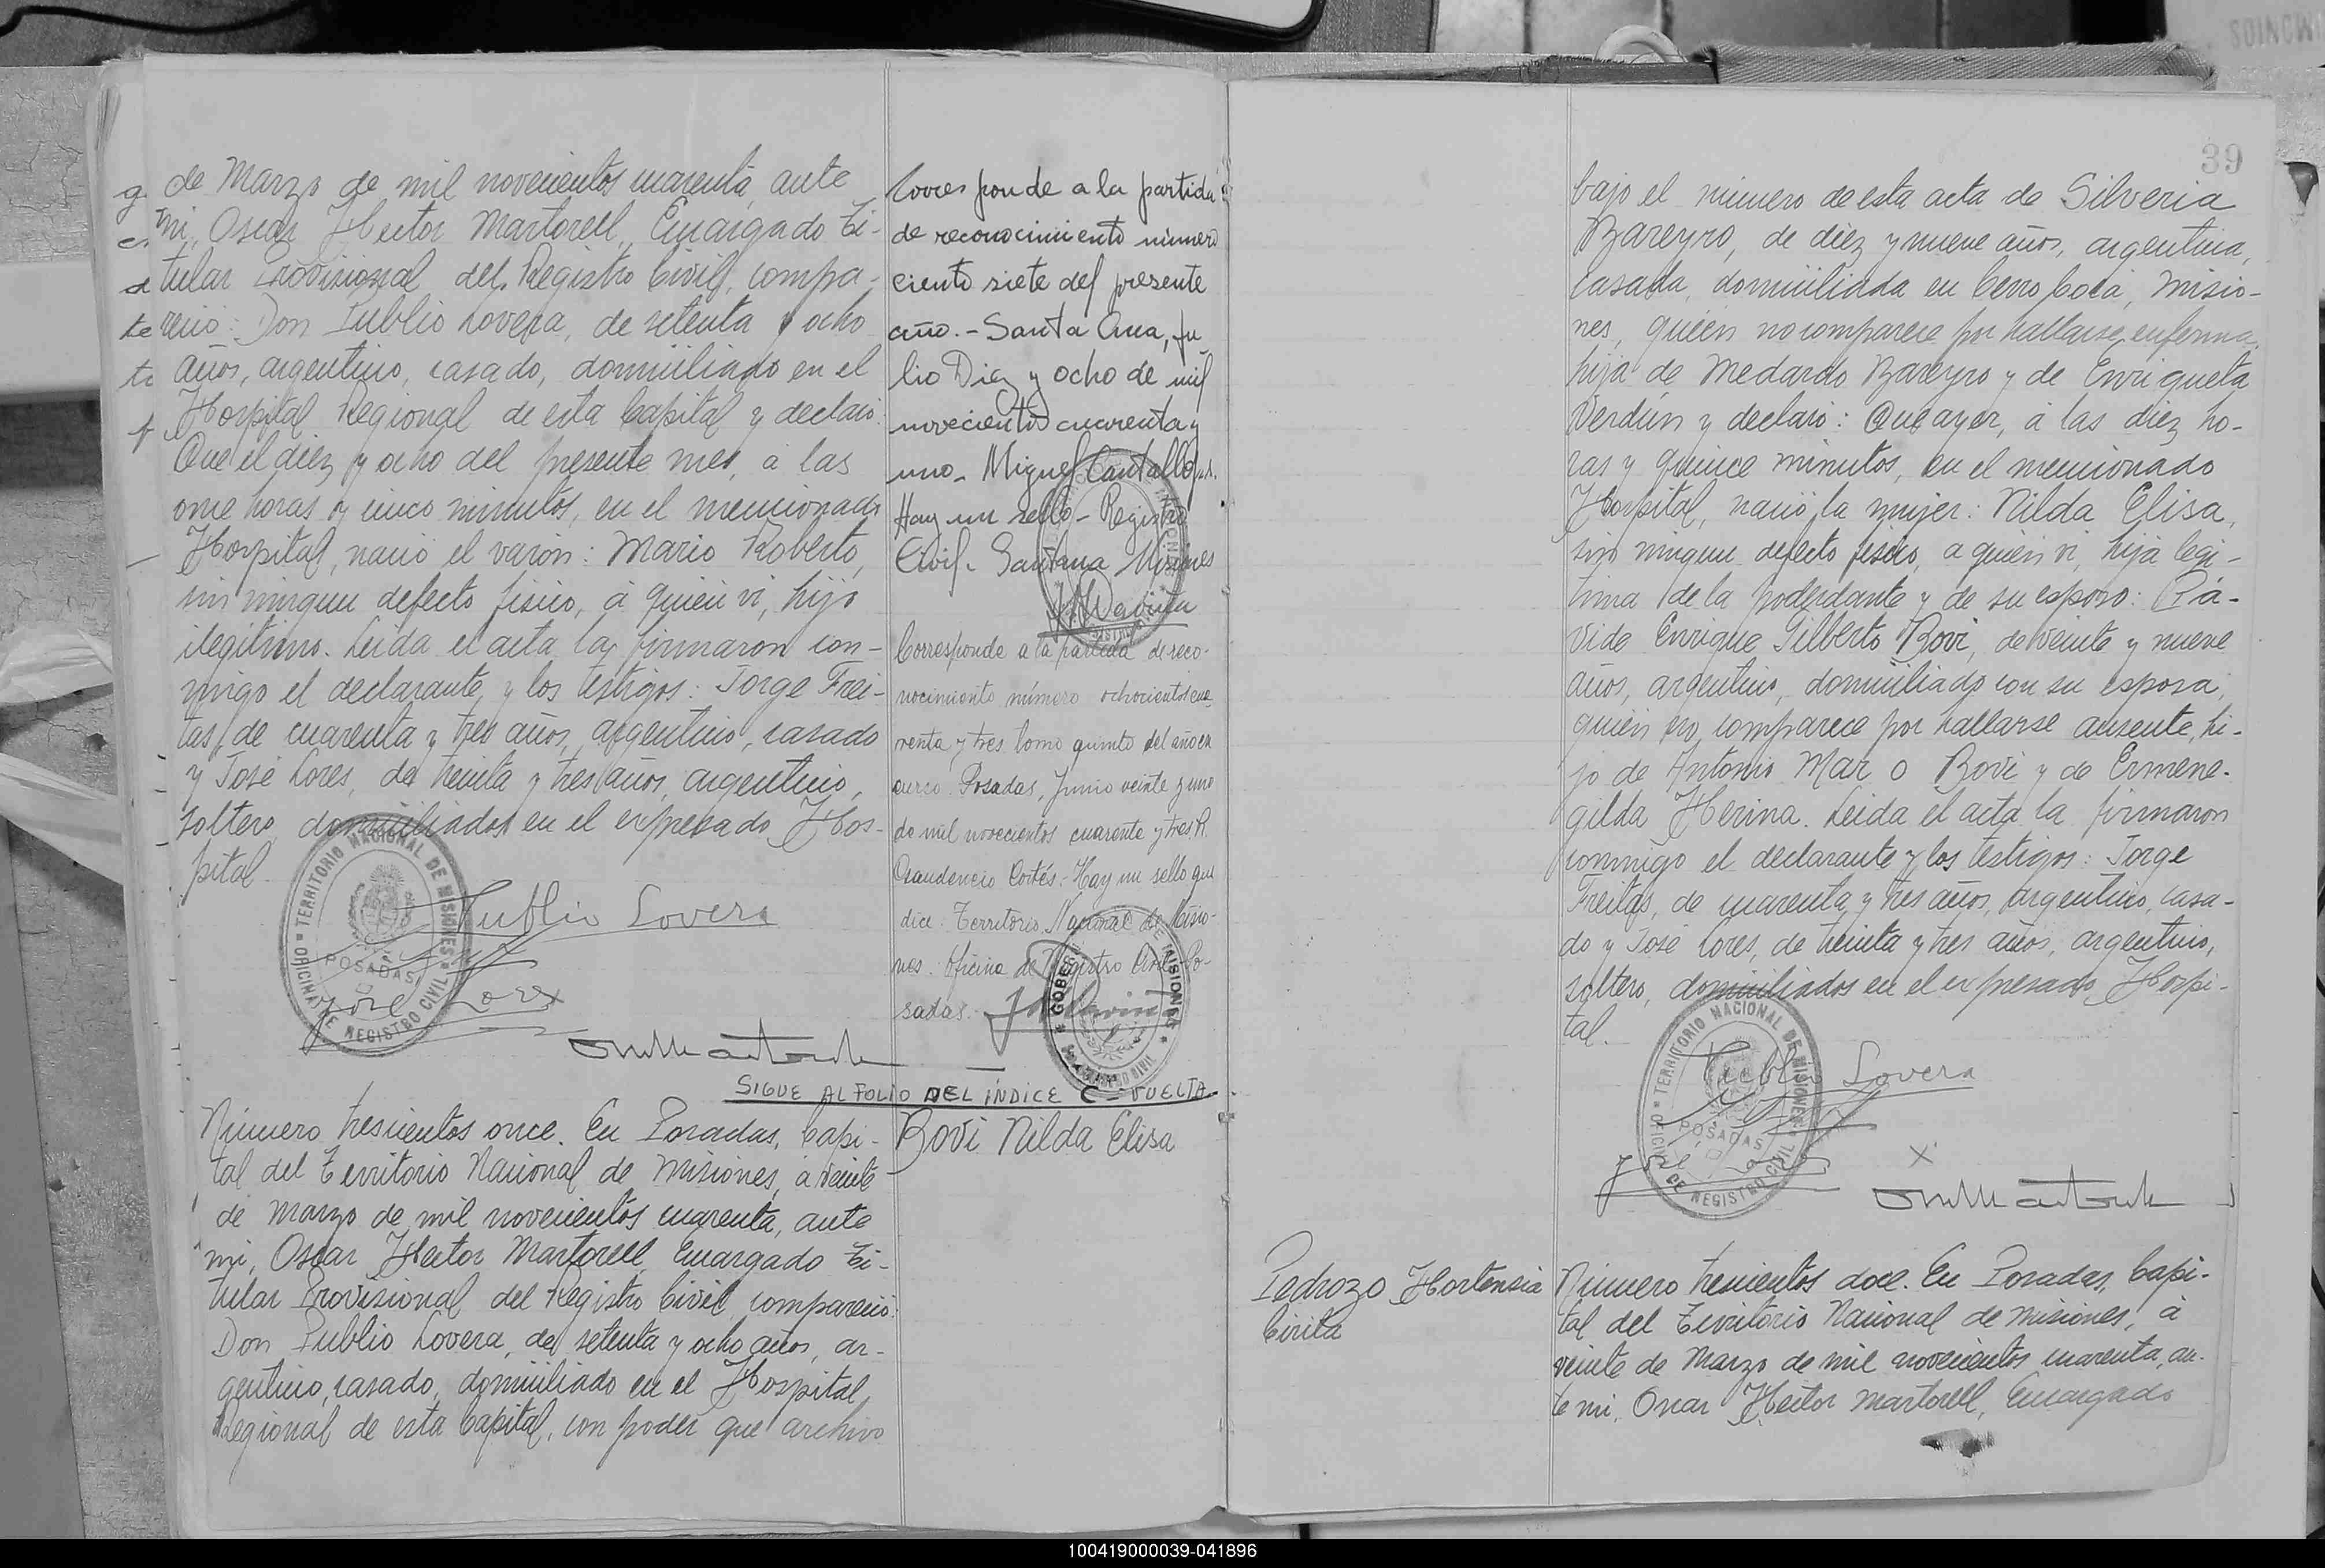 de Marzo de mil novecientos cuarenta, ante
mi, Oscar Hector Martorell, Encargado Ti-
tular Provisional del Registro Civil, compa-
reció: Don Publio Lovera, de setenta y ocho
años, argentino, casado, domiciliado en el
Hospital Regional de esta Capital y declaró:
Que el diez y ocho del presente mes, á las
once horas y cinco minutos, en el mencionado
Hospital, nació el varón: Mario Roberto,
sin ningun defecto fisico, á quién vi, hijo
ilegitimo. Leida el acta la firmaron con-
migo el declarante y los testigos: Jorge Frei-
tas, de cuarenta y tres años, argentino, casado
y José Lores, de treinta y tres años, argentino,
soltero, domiciliados en el expresado Hos-
pital.
Publio Lovera
José Lores
TERRITORIO NACIONAL DE MISIONES
POSADAS
OFICINA DE REGISTRO CIVIL
Corresponde a la partida
de reconocimiento número
ciento siete del presente
año.- Santa Ana, Ju-
lio Diez y ocho de mil
novecientos cuarenta y
uno - Miguel Cantallops.
Hay un sello - Registro
Civil - Santana Misiones
Corresponde a la partida de reco-
nocimiento número ochocientos cua-
renta y tres tomo quinto del año en
curso. Posadas, Junio veinte y uno
de mil novecientos cuarenta y tres. A.
Gaudencio Cortés.- Hay un sello que
dice: Territorio Nacional de Misio-
nes. Oficina de Registro Civil Po-
sadas.
SIGUE AL FOLIO DEL INDICE C - VUELTA
Número trescientos once. En Posadas, Capi-
tal del Territorio Nacional de Misiones, á veinte
de Marzo de mil novecientos cuarenta, ante
mi, Oscar Hector Martorell, Encargado Ti-
tular Provisional del Registro Civil, compareció:
Don Publio Lovera, de setenta y ocho años, ar-
gentino, casado, domiciliado en el Hospital
Regional de esta Capital, con poder que archivo
Bovi Nilda Elisa
39
bajo el número de esta acta de Silveria
Bareyro, de diez y nueve años, argentina,
casada, domiciliada en Cerro Corá, Misio-
nes, quién no comparece por hallarse enferma,
hija de Medardo Bareyro y de Enriqueta
Verdún y declaró: Que ayer, á las diez ho-
ras y quince minutos, en el mencionado
Hospital, nació la mujer: Nilda Elisa,
sin ningun defecto fisico, a quién vi, hija legi-
tima de la poderdante y de su esposo: Pla-
vide Enrique Gilberto Bovi, de veinte y nueve
años, argentino, domiciliado con su esposa,
quién no comparece por hallarse ausente, hi-
jo de Antonio Mar o Bovi y de Ermene-
gilda Herina. Leida el acta la firmaron
conmigo el declarante y los testigos: Jorge
Freitas, de cuarenta y tres años, argentino, casa-
do y José Lores, de treinta y tres años, argentino,
soltero, domiciliados en el expresado Hospi-
tal.
Publio Lovera
TERRITORIO NACIONAL DE MISIONES
POSADAS
OFICINA DE REGISTRO CIVIL
Pedrozo Hortensia
Cirila
Número trescientos doce. En Posadas, Capi-
tal del Territorio Nacional de Misiones, á
veinte de Marzo de mil novecientos cuarenta, an-
te mi, Oscar Hector Martorell, Encargado
100419000039-041896